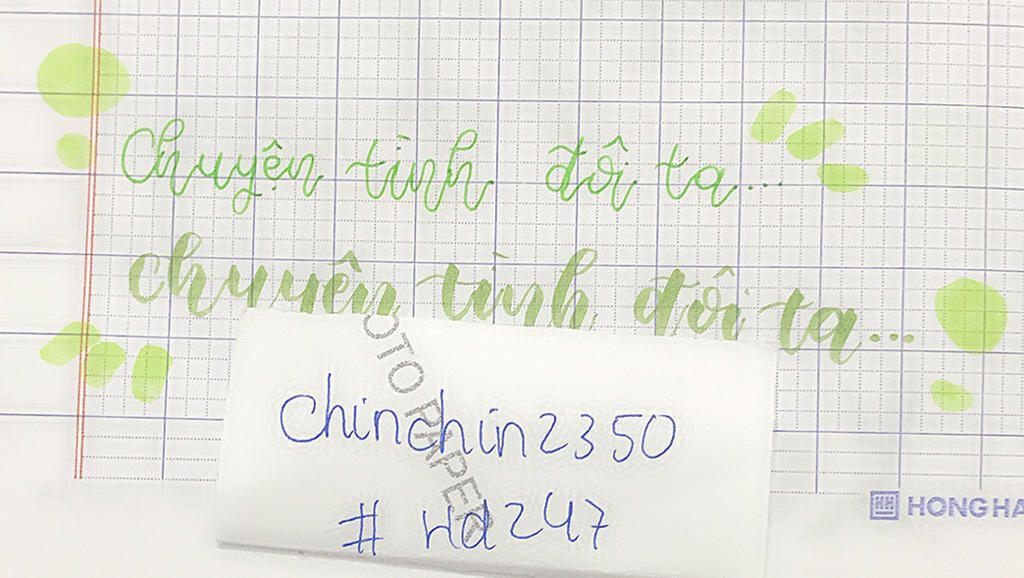 Chuyện tình đôi ta...
chuyện tình đôi ta...
chinchin2350
# Hd247
HONG HA